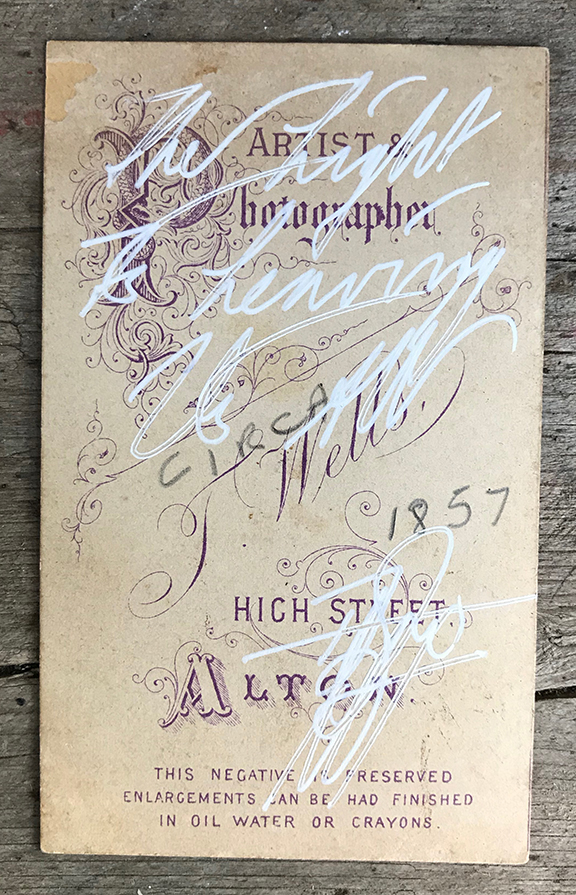 The Light
ARTIST &
Photographer
Is Leaving
Us All
CIRCA
T. Wells.
1857
HIGH STREET,
ALTON.
THIS NEGATIVE IS PRESERVED
ENLARGEMENTS CAN BE HAD FINISHED
IN OIL WATER OR CRAYONS.